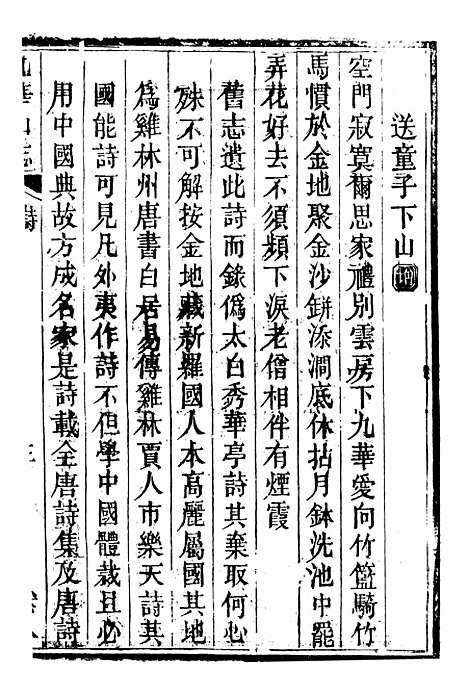 送童子下山
空門寂寞爾思家禮別雲房下九華愛向竹籃騎竹
馬慣於金地聚金沙缾添澗底休拈月鉢洗池中罷
弄花好去不須頻下淚老僧相伴有煙霞
舊志遺此詩而錄僞太白秀華亭詩其棄取何心
殊不可解按金地藏新羅國人本高麗屬國其地
爲雞林州唐書白居易傳雞林賈人市樂天詩其
國能詩可見凡外夷作詩不但學中國體裁且必
用中國典故方成名家是詩載全唐詩集及唐詩
華山志 詩 三